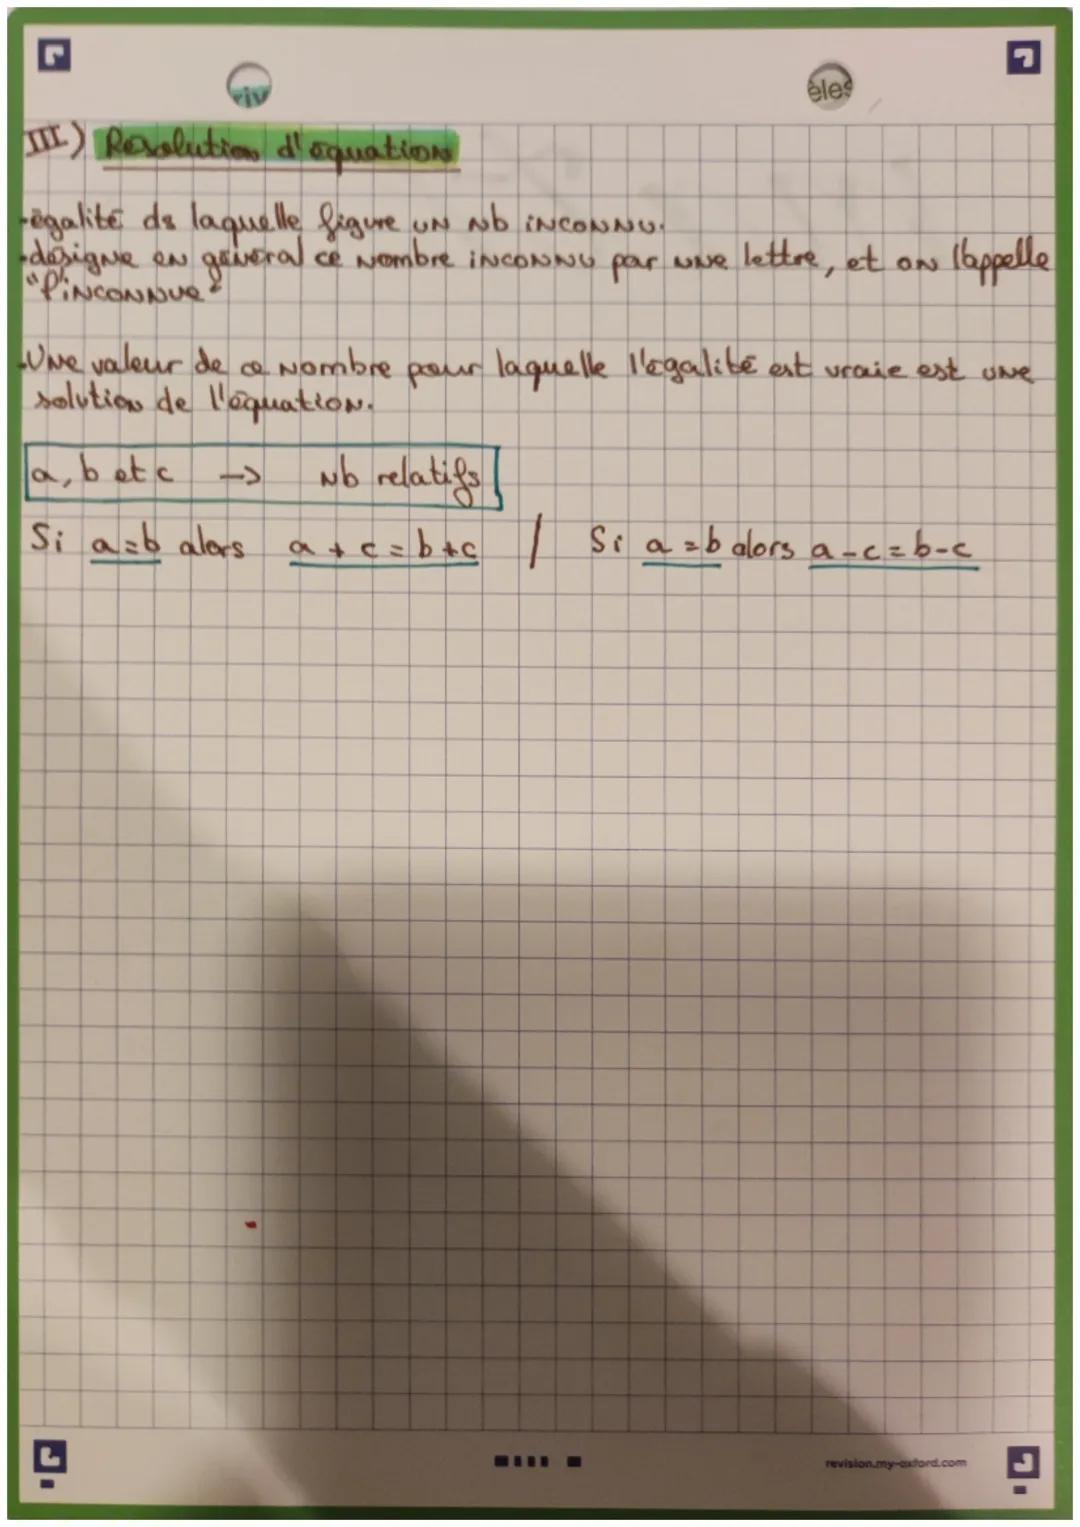 riv
èles
III.) Résolution d'équations
-égalité ds laquelle figure un nb inconnu.
-désigne en général ce nombre inconnu par une lettre, et on l'appelle
"l'inconnue"
-Une valeur de ce nombre pour laquelle l'égalité est vraie est une
solution de l'équation.
a, b et c -> nb relatifs
Si a=b alors a+c=b+c / Si a=b alors a-c=b-c
revision.my-oxford.com